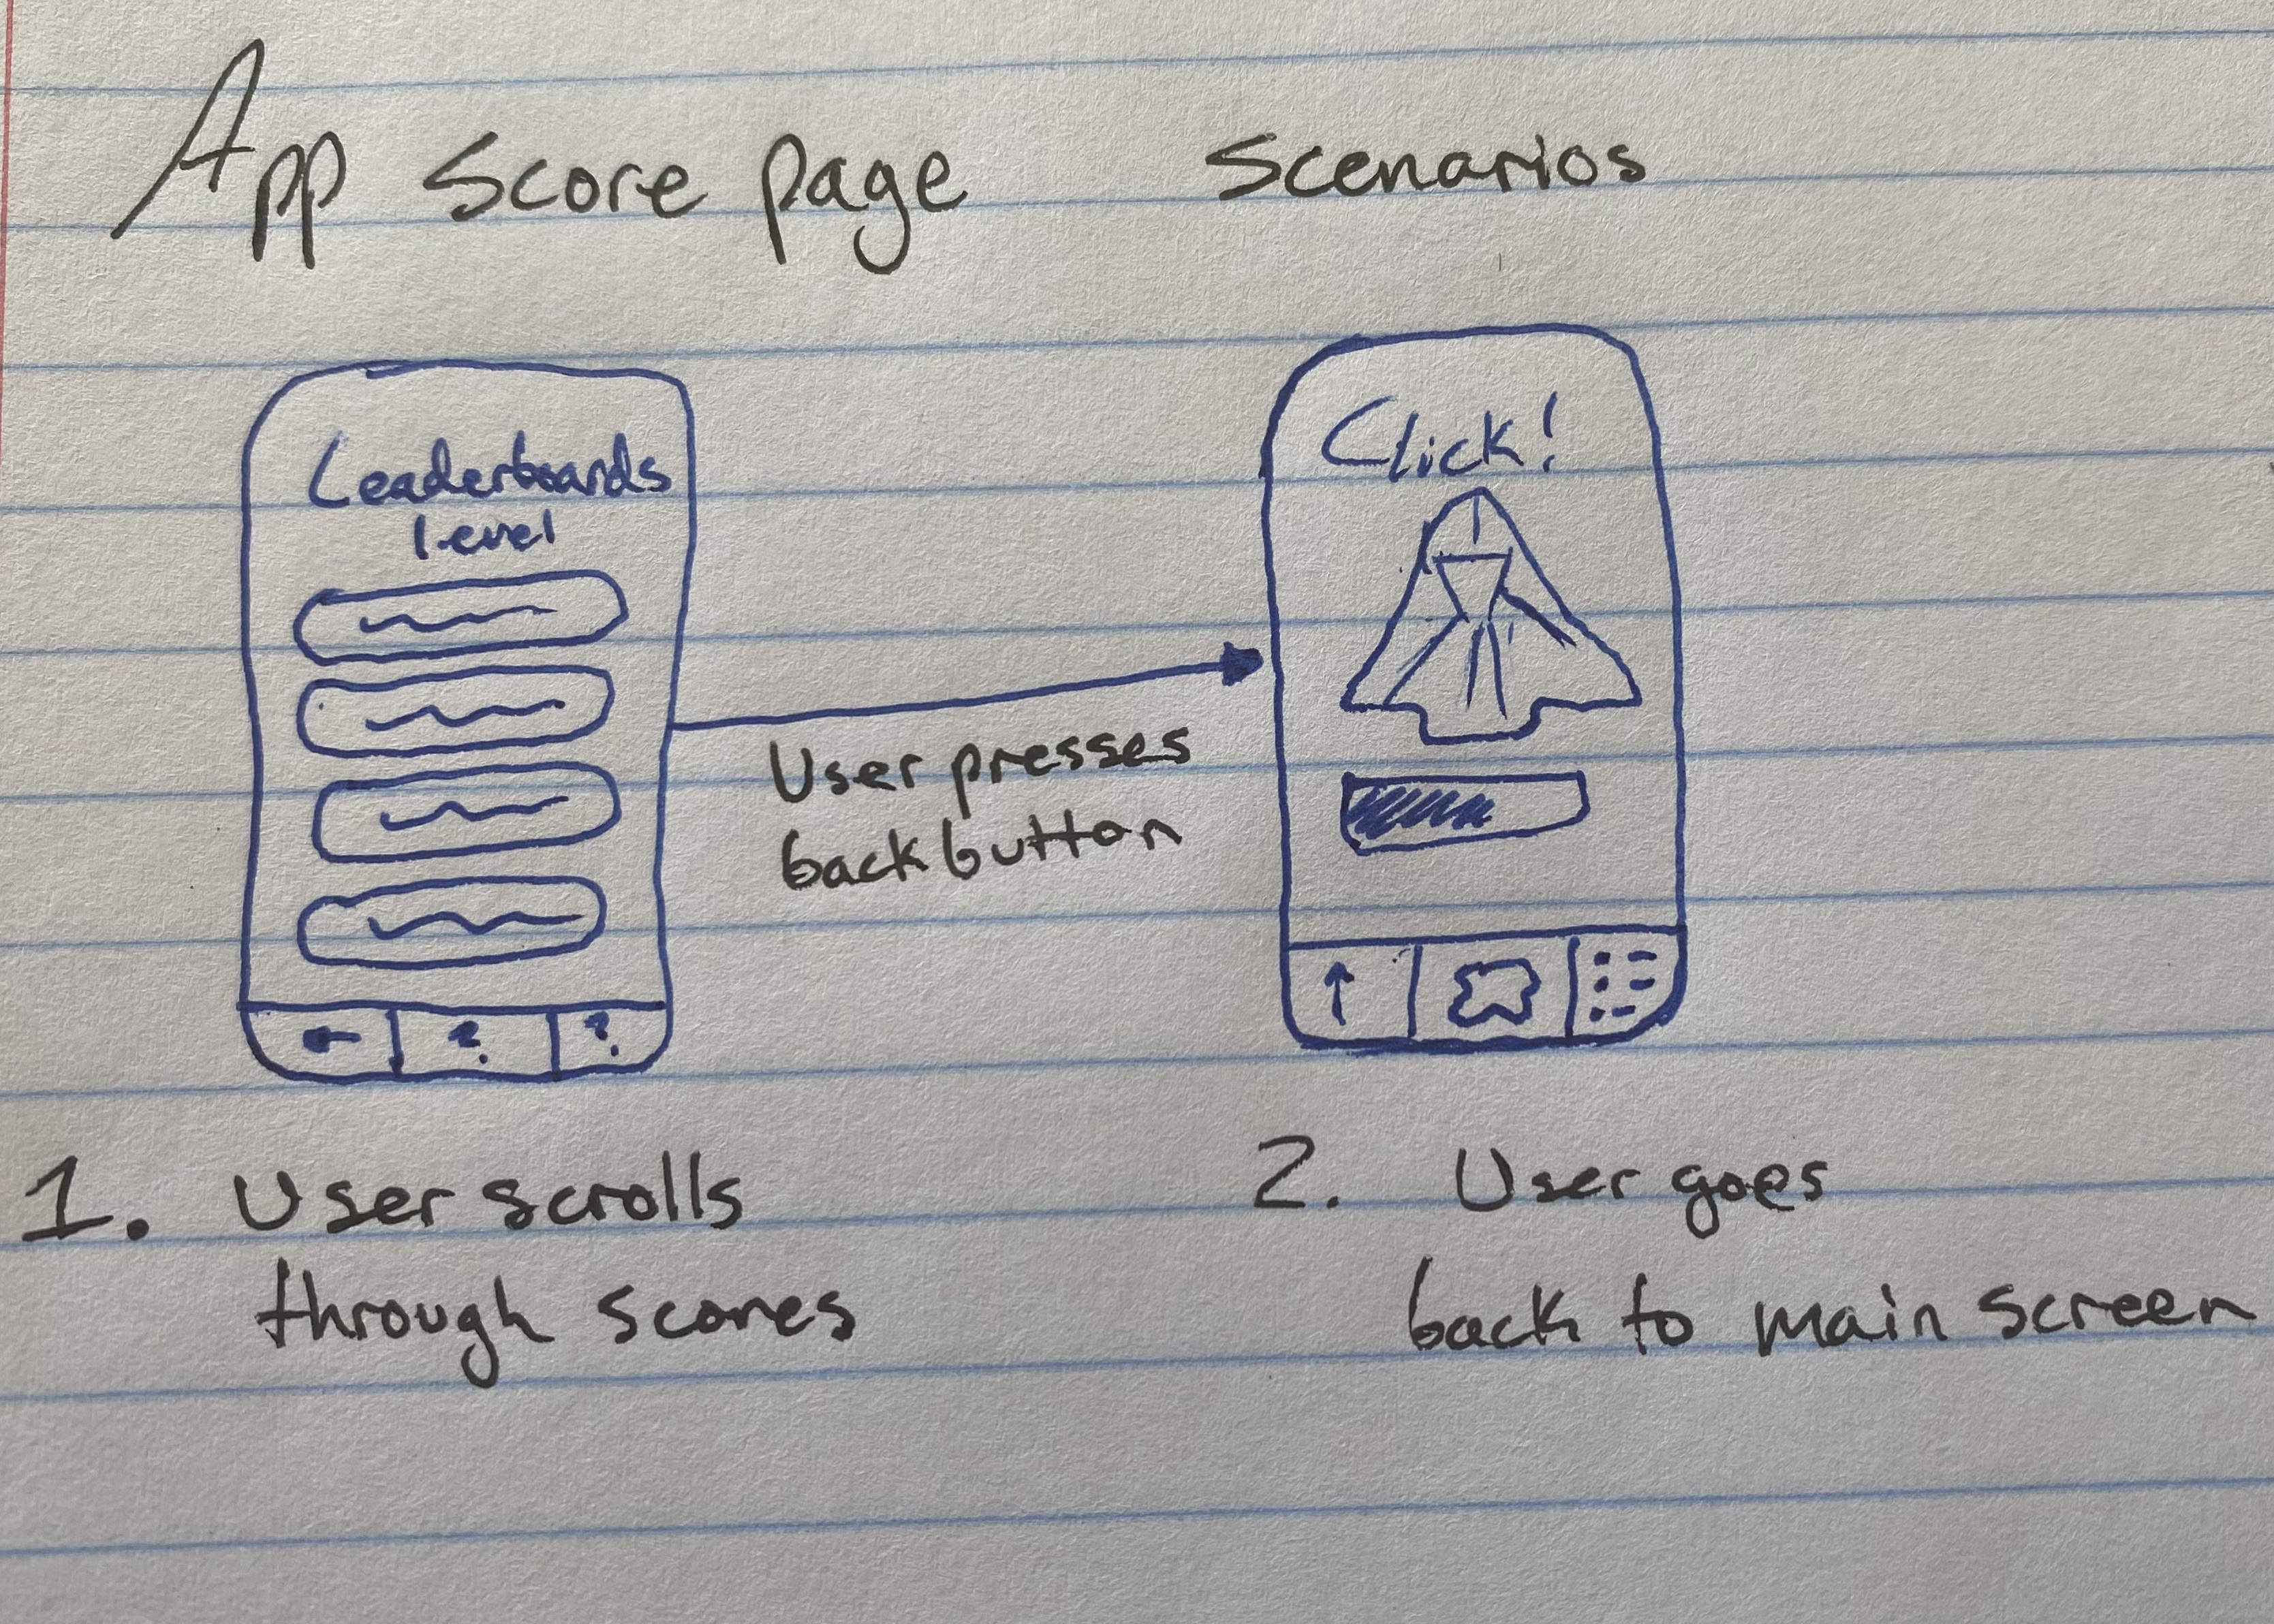 App Score page Scenarios
Leaderboards
level
? ?
Click!
User presses
back button
1. User scrolls
through scores
2. User goes
back to main screen